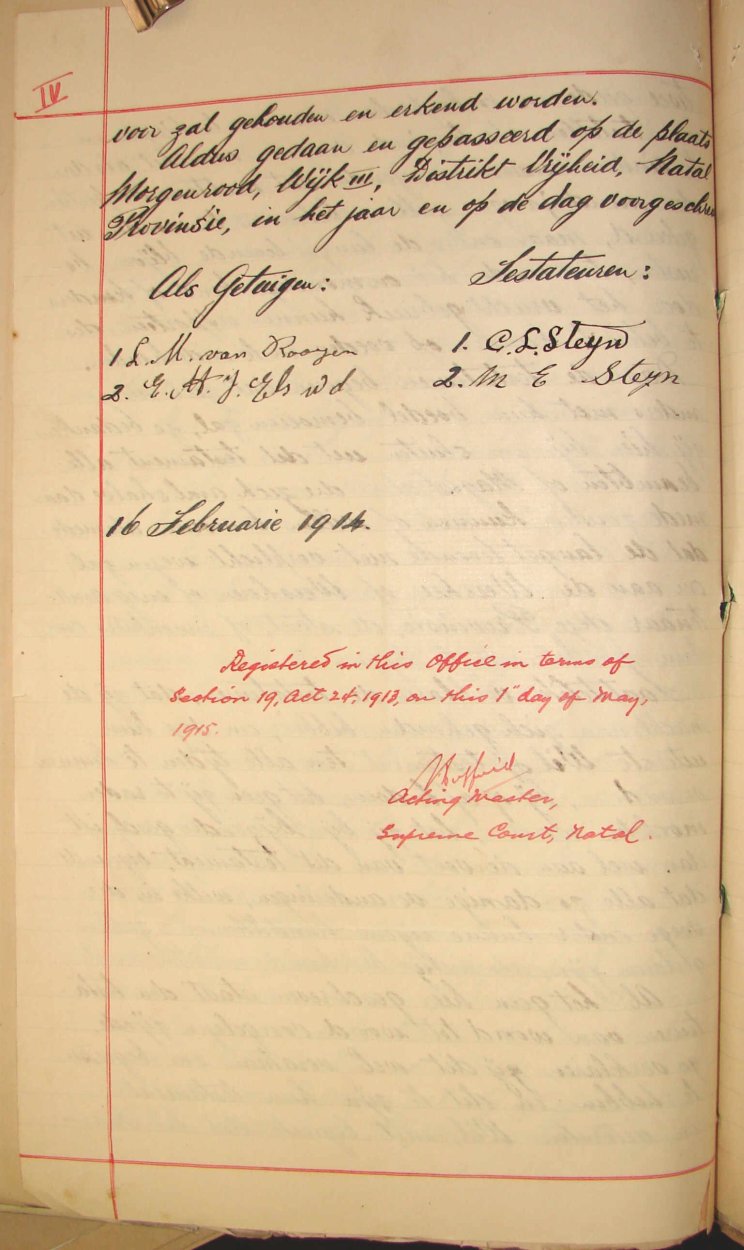 IV
voor zal gehouden en erkend worden.
Aldus gedaan en gepasseerd op de plaats
Morgenrood, Wijk III, Distrikt Vrijheid, Natal
Provinsie, in het jaar en op de dag voorgeschre
Als Getuigen: Testateuren:
1 L. M. van Rooyen 1. C. L. Steyn
2. E. A. J. Els wd 2. M E Steyn
16 Februarie 1914.
Registered in this Office in terms of
Section 19, Act 24, 1913, on this 1" day of May,
1915.
Acting Master,
Supreme Court, Natal.